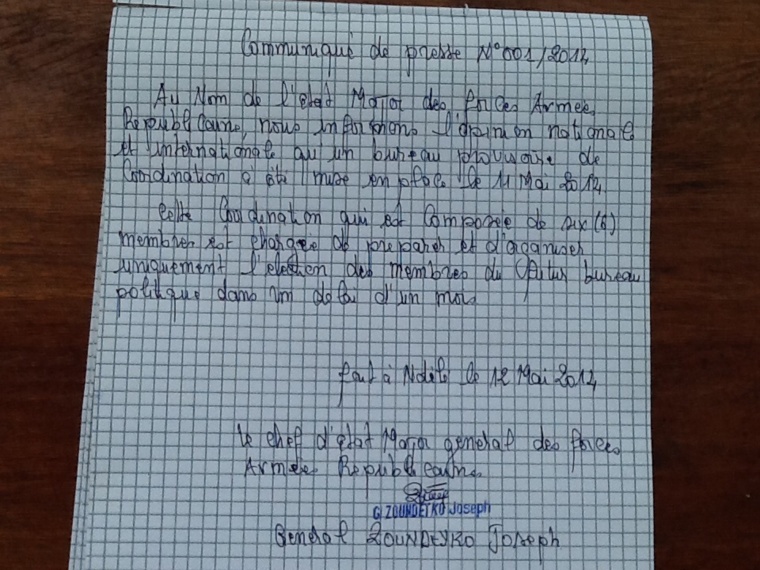 Communiqué de presse N°001/2014
Au Nom de l'etat Major des forces Armées
Republicaine, nous informons l'opinion nationale
et internationale qu'un bureau provisoire de
Coordination a été mise en place le 11 Mai 2014
Cette Coordination qui est Composée de six (6)
membres est chargée de preparer et d'organiser
uniquement l'election des membres du futur bureau
politique dans un delai d'un mois.
fait à Ndélé le 12 Mai 2014
le chef d'etat Major general des forces
Armées Republicaine
G ZOUNDEYKO Joseph
General ZOUNDEYKO Joseph